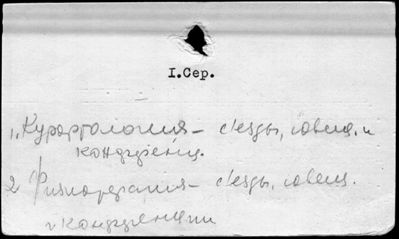 I.Сер.
1, Курортология – съезды, совещ. и
конференц.
2 Физиотерапия – съезды, совещ.
и конференции